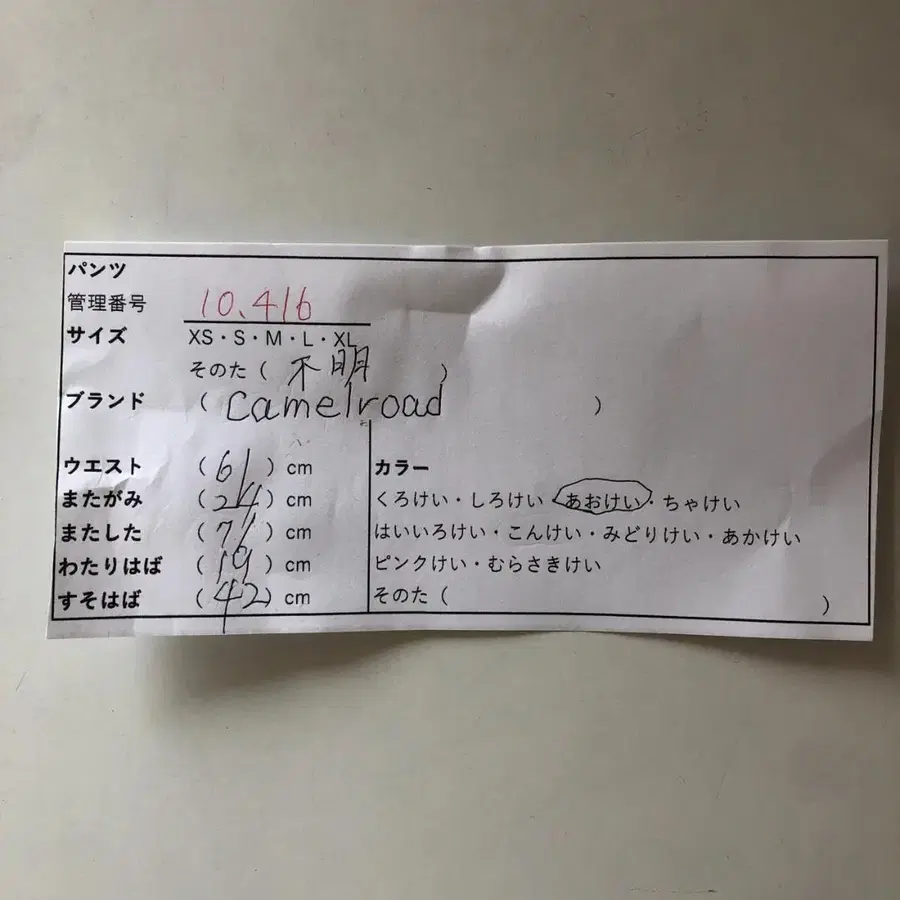 パンツ
管理番号 10.416
サイズ XS・S・M・L・XL
そのた（ 不明 ）
ブランド （ camelroad ）
ウエスト （ 61 ）cm
またがみ （ 24 ）cm
またした （ 71 ）cm
わたりはば （ 19 ）cm
すそはば （ 42 ）cm
カラー
くろけい・しろけい・あおけい・ちゃけい
はいいろけい・こんけい・みどりけい・あかけい
ピンクけい・むらさきけい
そのた（ ）